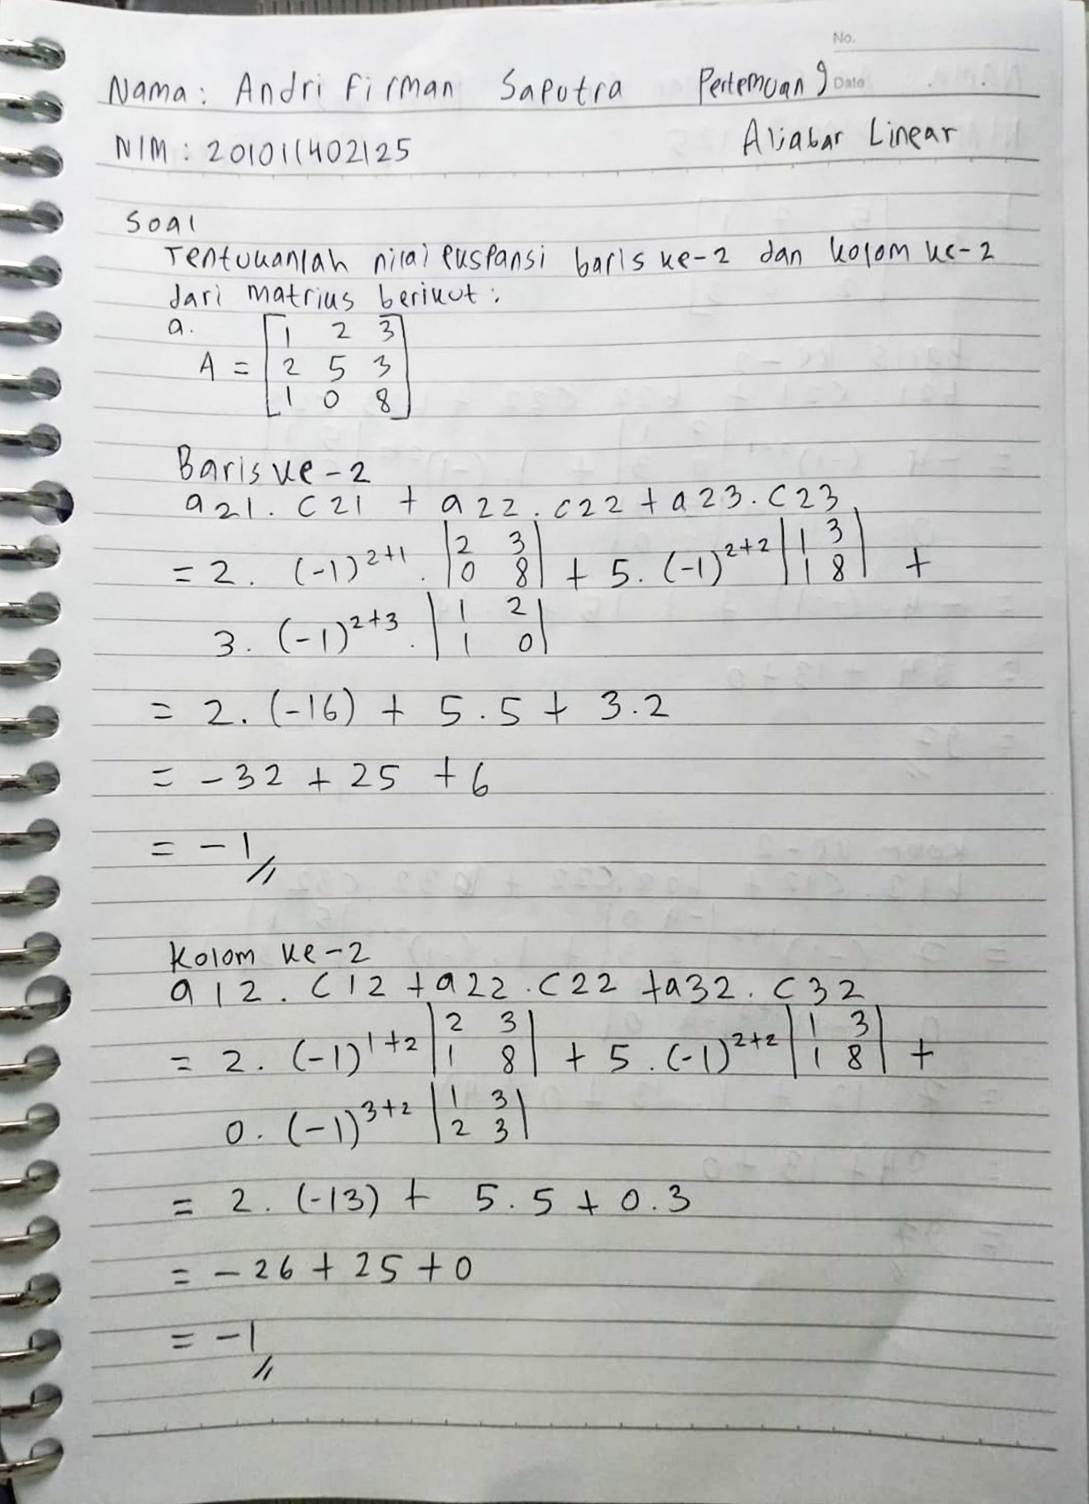 No.
Nama: Andri Firman Saputra Pertemuan 9 Date
NIM: 201011402125 Aljabar Linear
Soal
Tentukanlah nilai ekspansi baris ke-2 dan kolom ke-2
dari matriks berikut:
a.
A = [1 2 3
2 5 3
1 0 8]
Baris ke-2
a21. c21 + a22. c22 + a23. c23
= 2. (-1)^2+1 . |2 3 / 0 8| + 5. (-1)^2+2 |1 3 / 1 8| +
3. (-1)^2+3 . |1 2 / 1 0|
= 2. (-16) + 5.5 + 3.2
= -32 + 25 + 6
= -1 //
Kolom ke-2
a12. c12 + a22. c22 + a32. c32
= 2. (-1)^1+2 |2 3 / 1 8| + 5. (-1)^2+2 |1 3 / 1 8| +
0. (-1)^3+2 |1 3 / 2 3|
= 2. (-13) + 5.5 + 0.3
= -26 + 25 + 0
= -1 //